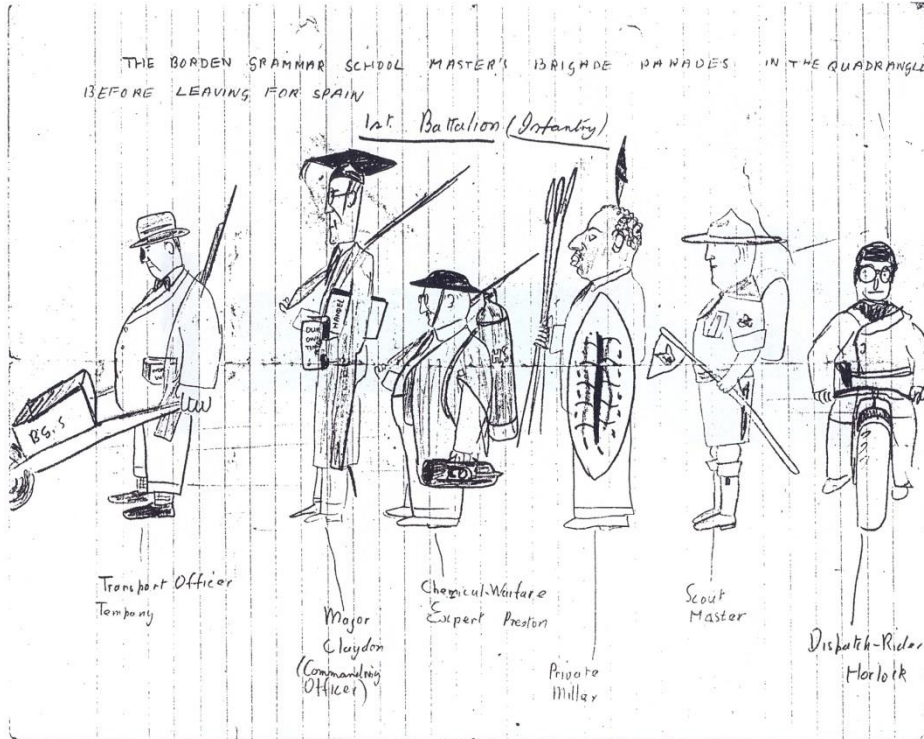 THE BORDEN GRAMMAR SCHOOL MASTER'S BRIGADE PARADES IN THE QUADRANGLE
BEFORE LEAVING FOR SPAIN
1st. Battalion (Infantry)
B.G.S
OUR
OWN
MANUEL
Transport Officer
Tempany
Major
Claydon
(Commanding
Officer)
Chemical-Warfare
Expert Preston
Private
Millar
Scout
Master
Dispatch-Rider
Horlock